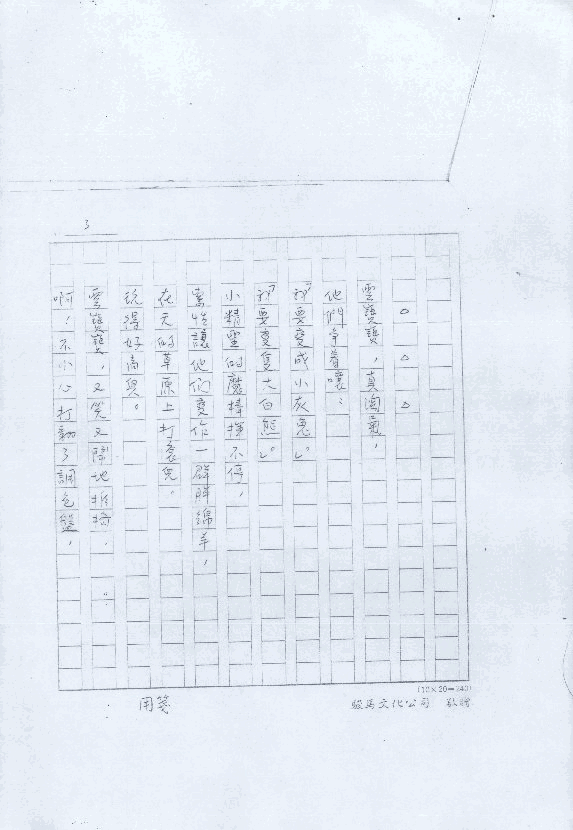 3
△ △ △
雲寶寶，真淘氣，
他們爭着嚷：
「我要變成小灰兔」。
「我要變隻大白熊」。
小精靈的魔棒揮不停，
索性讓他們變作一群胖綿羊，
在天的草原上打滾兒。
玩得好高興。
雲寶寶，又笑又鬧地
啊！不小心打翻了調色盤，
(12×20=240)
駿馬文化公司 敬贈
用箋